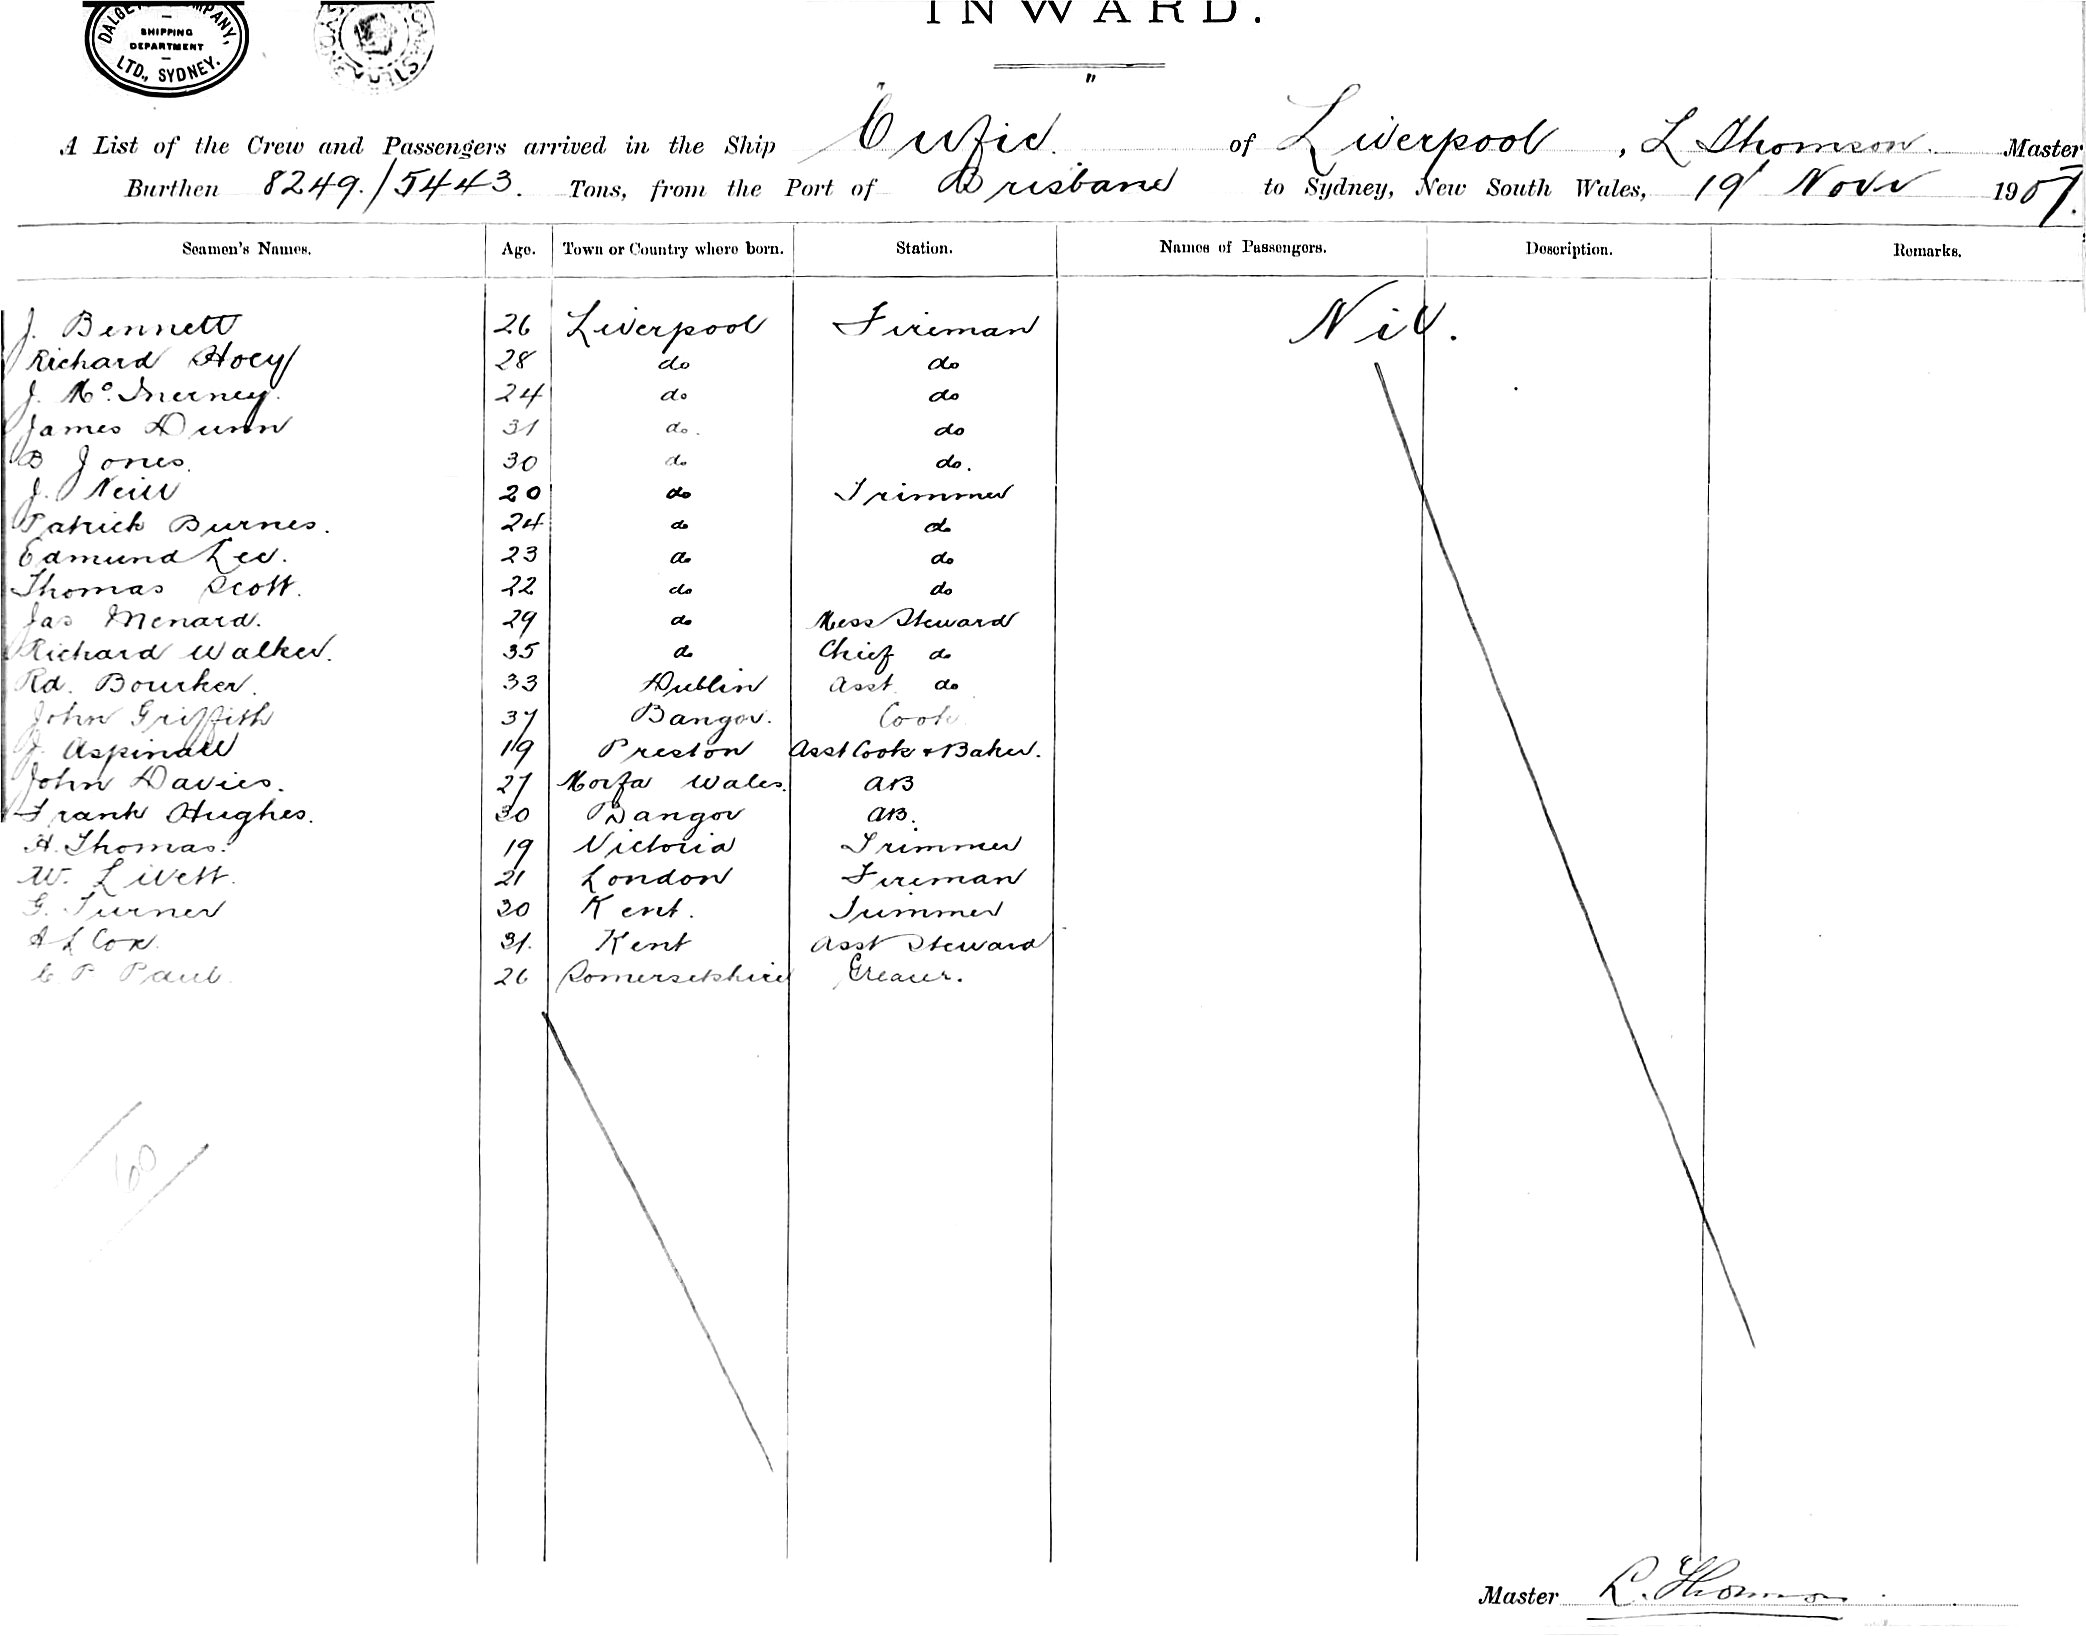 DALGETY & COMPANY,
SHIPPING
DEPARTMENT
LTD., SYDNEY.
INWARD.
A List of the Crew and Passengers arrived in the Ship Cufic. of Liverpool, L Thomson. Master
Burthen 8249./5443. Tons, from the Port of Brisbane to Sydney, New South Wales, 19 Novr 1907.
Seamen's Names. Age. Town or Country where born. Station. Names of Passengers. Description. Remarks.
J. Bennett 26 Liverpool Fireman Nil.
Richard Hoey 28 do do
J. Mc.Inerney. 24 do do
James Dunn 31 do. do
B Jones. 30 do do.
J. Neill 20 do Trimmer
Patrick Burnes. 24 do do
Edmund Lee. 23 do do
Thomas Scott. 22 do do
Jas Menard. 29 do Mess Steward
Richard Walker. 35 do Chief do
Rd. Bourker. 33 Dublin Asst. do
John Griffith 37 Bangor. Cook
J. Aspinall 19 Preston Asst Cook & Baker.
John Davies. 27 Morfa Wales. AB
Frank Hughes. 30 Bangor AB.
H. Thomas. 19 Victoria Trimmer
W. Livett. 21 London Fireman
G. Turner 30 Kent. Trimmer
A L Cox. 31. Kent Asst Steward
C P Paul. 26 Somersetshire Greaser.
60
Master L. Thomson